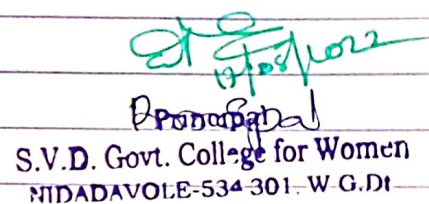 17/08/2022
Principal
S.V.D. Govt. College for Women
NIDADAVOLE-534 301. W G.Dt